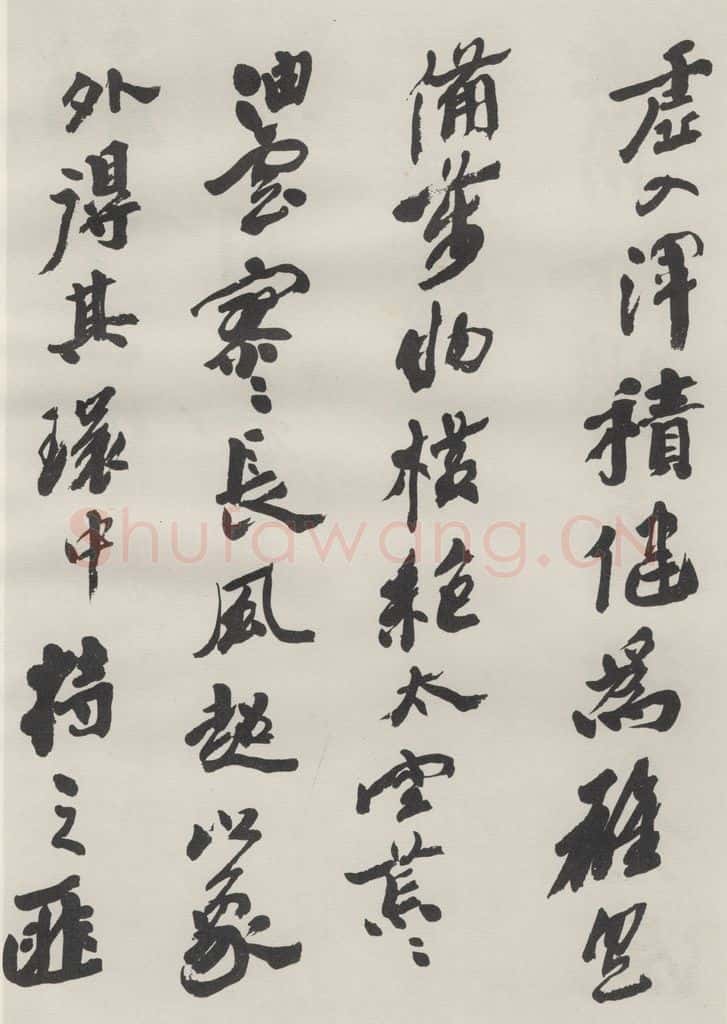 虛入渾積健為雄具
備萬物橫絕太空荒〻
油雲寥〻長風超以象
外得其環中持之匪
Shufawang.CN